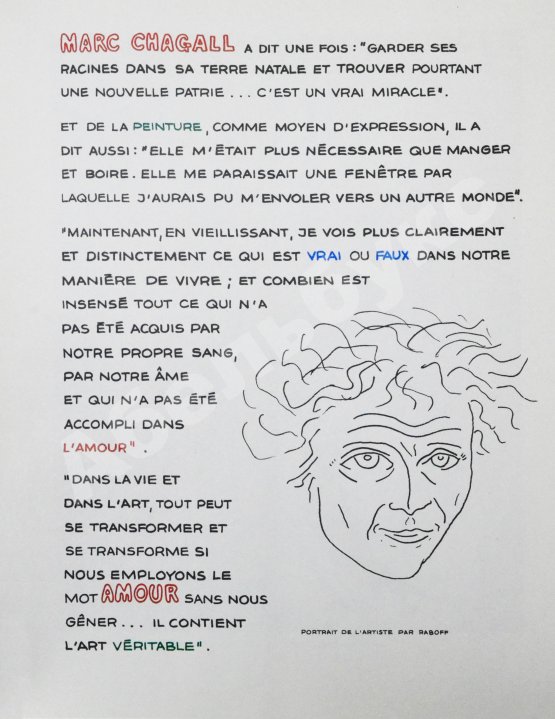 MARC CHAGALL A DIT UNE FOIS : "GARDER SES
RACINES DANS SA TERRE NATALE ET TROUVER POURTANT
UNE NOUVELLE PATRIE ... C'EST UN VRAI MIRACLE".
ET DE LA PEINTURE, COMME MOYEN D'EXPRESSION, IL A
DIT AUSSI : "ELLE M'ÉTAIT PLUS NÉCESSAIRE QUE MANGER
ET BOIRE. ELLE ME PARAISSAIT UNE FENÊTRE PAR
LAQUELLE J'AURAIS PU M'ENVOLER VERS UN AUTRE MONDE".
"MAINTENANT, EN VIEILLISSANT, JE VOIS PLUS CLAIREMENT
ET DISTINCTEMENT CE QUI EST VRAI OU FAUX DANS NOTRE
MANIÈRE DE VIVRE ; ET COMBIEN EST
INSENSÉ TOUT CE QUI N'A
PAS ÉTÉ ACQUIS PAR
NOTRE PROPRE SANG,
PAR NOTRE ÂME
ET QUI N'A PAS ÉTÉ
ACCOMPLI DANS
L'AMOUR".
"DANS LA VIE ET
DANS L'ART, TOUT PEUT
SE TRANSFORMER ET
SE TRANSFORME SI
NOUS EMPLOYONS LE
MOT AMOUR SANS NOUS
GÊNER... IL CONTIENT
L'ART VÉRITABLE".
PORTRAIT DE L'ARTISTE PAR RABOFF